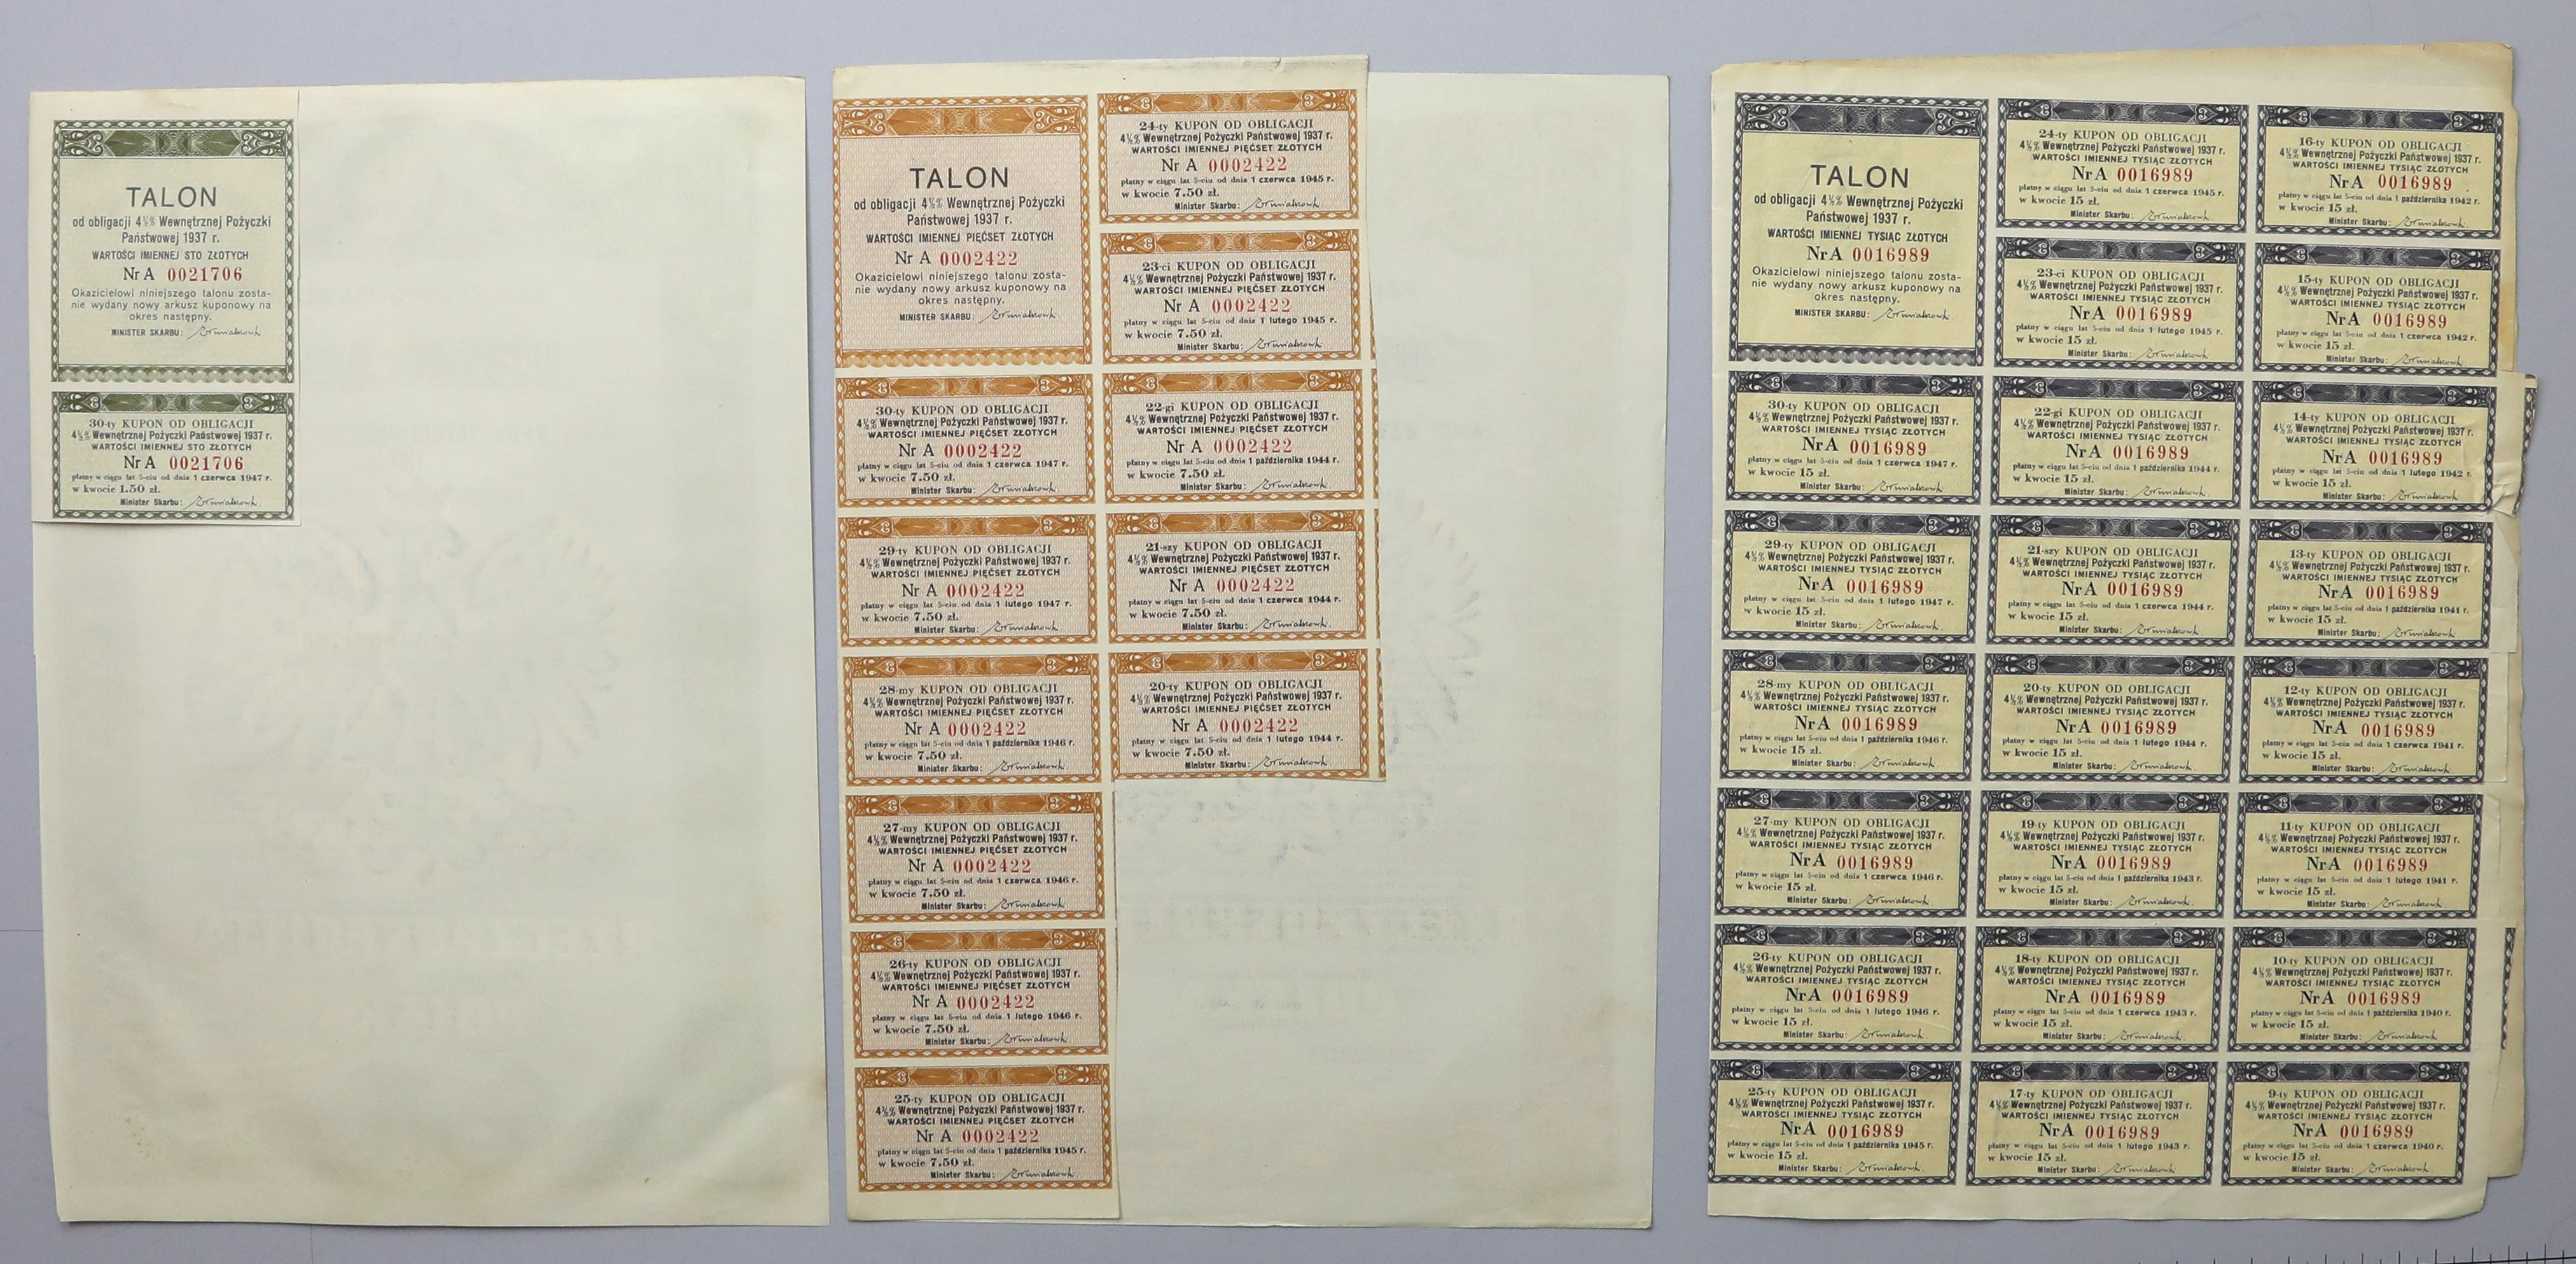 TALON
od obligacji 4½% Wewnętrznej Pożyczki
Państwowej 1937 r.
WARTOŚCI IMIENNEJ STO ZŁOTYCH
Nr A 0021706
Okazicielowi niniejszego talonu zosta-
nie wydany nowy arkusz kuponowy na
okres następny.
MINISTER SKARBU:
30-ty KUPON OD OBLIGACJI
4½% Wewnętrznej Pożyczki Państwowej 1937 r.
WARTOŚCI IMIENNEJ STO ZŁOTYCH
Nr A 0021706
płatny w ciągu lat 5-ciu od dnia 1 czerwca 1947 r.
w kwocie 1.50 zł.
Minister Skarbu:
TALON
od obligacji 4½% Wewnętrznej Pożyczki
Państwowej 1937 r.
WARTOŚCI IMIENNEJ PIĘĆSET ZŁOTYCH
Nr A 0002422
Okazicielowi niniejszego talonu zosta-
nie wydany nowy arkusz kuponowy na
okres następny.
MINISTER SKARBU:
30-ty KUPON OD OBLIGACJI
4½% Wewnętrznej Pożyczki Państwowej 1937 r.
WARTOŚCI IMIENNEJ PIĘĆSET ZŁOTYCH
Nr A 0002422
płatny w ciągu lat 5-ciu od dnia 1 czerwca 1947 r.
w kwocie 7.50 zł.
Minister Skarbu:
29-ty KUPON OD OBLIGACJI
4½% Wewnętrznej Pożyczki Państwowej 1937 r.
WARTOŚCI IMIENNEJ PIĘĆSET ZŁOTYCH
Nr A 0002422
płatny w ciągu lat 5-ciu od dnia 1 lutego 1947 r.
w kwocie 7.50 zł.
Minister Skarbu:
28-my KUPON OD OBLIGACJI
4½% Wewnętrznej Pożyczki Państwowej 1937 r.
WARTOŚCI IMIENNEJ PIĘĆSET ZŁOTYCH
Nr A 0002422
płatny w ciągu lat 5-ciu od dnia 1 października 1946 r.
w kwocie 7.50 zł.
Minister Skarbu:
27-my KUPON OD OBLIGACJI
4½% Wewnętrznej Pożyczki Państwowej 1937 r.
WARTOŚCI IMIENNEJ PIĘĆSET ZŁOTYCH
Nr A 0002422
płatny w ciągu lat 5-ciu od dnia 1 czerwca 1946 r.
w kwocie 7.50 zł.
Minister Skarbu:
26-ty KUPON OD OBLIGACJI
4½% Wewnętrznej Pożyczki Państwowej 1937 r.
WARTOŚCI IMIENNEJ PIĘĆSET ZŁOTYCH
Nr A 0002422
płatny w ciągu lat 5-ciu od dnia 1 lutego 1946 r.
w kwocie 7.50 zł.
Minister Skarbu:
25-ty KUPON OD OBLIGACJI
4½% Wewnętrznej Pożyczki Państwowej 1937 r.
WARTOŚCI IMIENNEJ PIĘĆSET ZŁOTYCH
Nr A 0002422
płatny w ciągu lat 5-ciu od dnia 1 października 1945 r.
w kwocie 7.50 zł.
Minister Skarbu:
24-ty KUPON OD OBLIGACJI
4½% Wewnętrznej Pożyczki Państwowej 1937 r.
WARTOŚCI IMIENNEJ PIĘĆSET ZŁOTYCH
Nr A 0002422
płatny w ciągu lat 5-ciu od dnia 1 czerwca 1945 r.
w kwocie 7.50 zł.
Minister Skarbu:
23-ci KUPON OD OBLIGACJI
4½% Wewnętrznej Pożyczki Państwowej 1937 r.
WARTOŚCI IMIENNEJ PIĘĆSET ZŁOTYCH
Nr A 0002422
płatny w ciągu lat 5-ciu od dnia 1 lutego 1945 r.
w kwocie 7.50 zł.
Minister Skarbu:
22-gi KUPON OD OBLIGACJI
4½% Wewnętrznej Pożyczki Państwowej 1937 r.
WARTOŚCI IMIENNEJ PIĘĆSET ZŁOTYCH
Nr A 0002422
płatny w ciągu lat 5-ciu od dnia 1 października 1944 r.
w kwocie 7.50 zł.
Minister Skarbu:
21-szy KUPON OD OBLIGACJI
4½% Wewnętrznej Pożyczki Państwowej 1937 r.
WARTOŚCI IMIENNEJ PIĘĆSET ZŁOTYCH
Nr A 0002422
płatny w ciągu lat 5-ciu od dnia 1 czerwca 1944 r.
w kwocie 7.50 zł.
Minister Skarbu:
20-ty KUPON OD OBLIGACJI
4½% Wewnętrznej Pożyczki Państwowej 1937 r.
WARTOŚCI IMIENNEJ PIĘĆSET ZŁOTYCH
Nr A 0002422
płatny w ciągu lat 5-ciu od dnia 1 lutego 1944 r.
w kwocie 7.50 zł.
Minister Skarbu:
TALON
od obligacji 4½% Wewnętrznej Pożyczki
Państwowej 1937 r.
WARTOŚCI IMIENNEJ TYSIĄC ZŁOTYCH
Nr A 0016989
Okazicielowi niniejszego talonu zosta-
nie wydany nowy arkusz kuponowy na
okres następny.
MINISTER SKARBU:
30-ty KUPON OD OBLIGACJI
4½% Wewnętrznej Pożyczki Państwowej 1937 r.
WARTOŚCI IMIENNEJ TYSIĄC ZŁOTYCH
Nr A 0016989
płatny w ciągu lat 5-ciu od dnia 1 czerwca 1947 r.
w kwocie 15 zł.
Minister Skarbu:
29-ty KUPON OD OBLIGACJI
4½% Wewnętrznej Pożyczki Państwowej 1937 r.
WARTOŚCI IMIENNEJ TYSIĄC ZŁOTYCH
Nr A 0016989
płatny w ciągu lat 5-ciu od dnia 1 lutego 1947 r.
w kwocie 15 zł.
Minister Skarbu:
28-my KUPON OD OBLIGACJI
4½% Wewnętrznej Pożyczki Państwowej 1937 r.
WARTOŚCI IMIENNEJ TYSIĄC ZŁOTYCH
Nr A 0016989
płatny w ciągu lat 5-ciu od dnia 1 października 1946 r.
w kwocie 15 zł.
Minister Skarbu:
27-my KUPON OD OBLIGACJI
4½% Wewnętrznej Pożyczki Państwowej 1937 r.
WARTOŚCI IMIENNEJ TYSIĄC ZŁOTYCH
Nr A 0016989
płatny w ciągu lat 5-ciu od dnia 1 czerwca 1946 r.
w kwocie 15 zł.
Minister Skarbu:
26-ty KUPON OD OBLIGACJI
4½% Wewnętrznej Pożyczki Państwowej 1937 r.
WARTOŚCI IMIENNEJ TYSIĄC ZŁOTYCH
Nr A 0016989
płatny w ciągu lat 5-ciu od dnia 1 lutego 1946 r.
w kwocie 15 zł.
Minister Skarbu:
25-ty KUPON OD OBLIGACJI
4½% Wewnętrznej Pożyczki Państwowej 1937 r.
WARTOŚCI IMIENNEJ TYSIĄC ZŁOTYCH
Nr A 0016989
płatny w ciągu lat 5-ciu od dnia 1 października 1945 r.
w kwocie 15 zł.
Minister Skarbu:
24-ty KUPON OD OBLIGACJI
4½% Wewnętrznej Pożyczki Państwowej 1937 r.
WARTOŚCI IMIENNEJ TYSIĄC ZŁOTYCH
Nr A 0016989
płatny w ciągu lat 5-ciu od dnia 1 czerwca 1945 r.
w kwocie 15 zł.
Minister Skarbu:
23-ci KUPON OD OBLIGACJI
4½% Wewnętrznej Pożyczki Państwowej 1937 r.
WARTOŚCI IMIENNEJ TYSIĄC ZŁOTYCH
Nr A 0016989
płatny w ciągu lat 5-ciu od dnia 1 lutego 1945 r.
w kwocie 15 zł.
Minister Skarbu:
22-gi KUPON OD OBLIGACJI
4½% Wewnętrznej Pożyczki Państwowej 1937 r.
WARTOŚCI IMIENNEJ TYSIĄC ZŁOTYCH
Nr A 0016989
płatny w ciągu lat 5-ciu od dnia 1 października 1944 r.
w kwocie 15 zł.
Minister Skarbu:
21-szy KUPON OD OBLIGACJI
4½% Wewnętrznej Pożyczki Państwowej 1937 r.
WARTOŚCI IMIENNEJ TYSIĄC ZŁOTYCH
Nr A 0016989
płatny w ciągu lat 5-ciu od dnia 1 czerwca 1944 r.
w kwocie 15 zł.
Minister Skarbu:
20-ty KUPON OD OBLIGACJI
4½% Wewnętrznej Pożyczki Państwowej 1937 r.
WARTOŚCI IMIENNEJ TYSIĄC ZŁOTYCH
Nr A 0016989
płatny w ciągu lat 5-ciu od dnia 1 lutego 1944 r.
w kwocie 15 zł.
Minister Skarbu:
19-ty KUPON OD OBLIGACJI
4½% Wewnętrznej Pożyczki Państwowej 1937 r.
WARTOŚCI IMIENNEJ TYSIĄC ZŁOTYCH
Nr A 0016989
płatny w ciągu lat 5-ciu od dnia 1 października 1943 r.
w kwocie 15 zł.
Minister Skarbu:
18-ty KUPON OD OBLIGACJI
4½% Wewnętrznej Pożyczki Państwowej 1937 r.
WARTOŚCI IMIENNEJ TYSIĄC ZŁOTYCH
Nr A 0016989
płatny w ciągu lat 5-ciu od dnia 1 czerwca 1943 r.
w kwocie 15 zł.
Minister Skarbu:
17-ty KUPON OD OBLIGACJI
4½% Wewnętrznej Pożyczki Państwowej 1937 r.
WARTOŚCI IMIENNEJ TYSIĄC ZŁOTYCH
Nr A 0016989
płatny w ciągu lat 5-ciu od dnia 1 lutego 1943 r.
w kwocie 15 zł.
Minister Skarbu:
16-ty KUPON OD OBLIGACJI
4½% Wewnętrznej Pożyczki Państwowej 1937 r.
WARTOŚCI IMIENNEJ TYSIĄC ZŁOTYCH
Nr A 0016989
płatny w ciągu lat 5-ciu od dnia 1 października 1942 r.
w kwocie 15 zł.
Minister Skarbu:
15-ty KUPON OD OBLIGACJI
4½% Wewnętrznej Pożyczki Państwowej 1937 r.
WARTOŚCI IMIENNEJ TYSIĄC ZŁOTYCH
Nr A 0016989
płatny w ciągu lat 5-ciu od dnia 1 czerwca 1942 r.
w kwocie 15 zł.
Minister Skarbu:
14-ty KUPON OD OBLIGACJI
4½% Wewnętrznej Pożyczki Państwowej 1937 r.
WARTOŚCI IMIENNEJ TYSIĄC ZŁOTYCH
Nr A 0016989
płatny w ciągu lat 5-ciu od dnia 1 lutego 1942 r.
w kwocie 15 zł.
Minister Skarbu:
13-ty KUPON OD OBLIGACJI
4½% Wewnętrznej Pożyczki Państwowej 1937 r.
WARTOŚCI IMIENNEJ TYSIĄC ZŁOTYCH
Nr A 0016989
płatny w ciągu lat 5-ciu od dnia 1 października 1941 r.
w kwocie 15 zł.
Minister Skarbu:
12-ty KUPON OD OBLIGACJI
4½% Wewnętrznej Pożyczki Państwowej 1937 r.
WARTOŚCI IMIENNEJ TYSIĄC ZŁOTYCH
Nr A 0016989
płatny w ciągu lat 5-ciu od dnia 1 czerwca 1941 r.
w kwocie 15 zł.
Minister Skarbu:
11-ty KUPON OD OBLIGACJI
4½% Wewnętrznej Pożyczki Państwowej 1937 r.
WARTOŚCI IMIENNEJ TYSIĄC ZŁOTYCH
Nr A 0016989
płatny w ciągu lat 5-ciu od dnia 1 lutego 1941 r.
w kwocie 15 zł.
Minister Skarbu:
10-ty KUPON OD OBLIGACJI
4½% Wewnętrznej Pożyczki Państwowej 1937 r.
WARTOŚCI IMIENNEJ TYSIĄC ZŁOTYCH
Nr A 0016989
płatny w ciągu lat 5-ciu od dnia 1 października 1940 r.
w kwocie 15 zł.
Minister Skarbu:
9-ty KUPON OD OBLIGACJI
4½% Wewnętrznej Pożyczki Państwowej 1937 r.
WARTOŚCI IMIENNEJ TYSIĄC ZŁOTYCH
Nr A 0016989
płatny w ciągu lat 5-ciu od dnia 1 czerwca 1940 r.
w kwocie 15 zł.
Minister Skarbu: